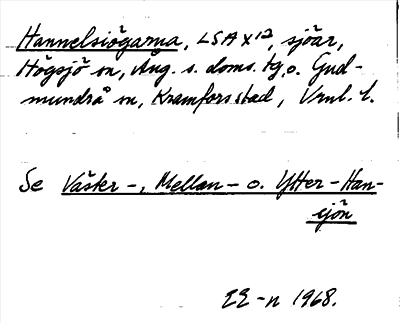 Hannelsiögarna, LSA X12, sjöar,
Högsjö sn, Ång. s. doms. tg, o. Gud-
mundrå sn, Kramfors stad, Vnl. l.
Se Väster-, Mellan- o. Ytter-Han-
sjön
EE-n 1968.